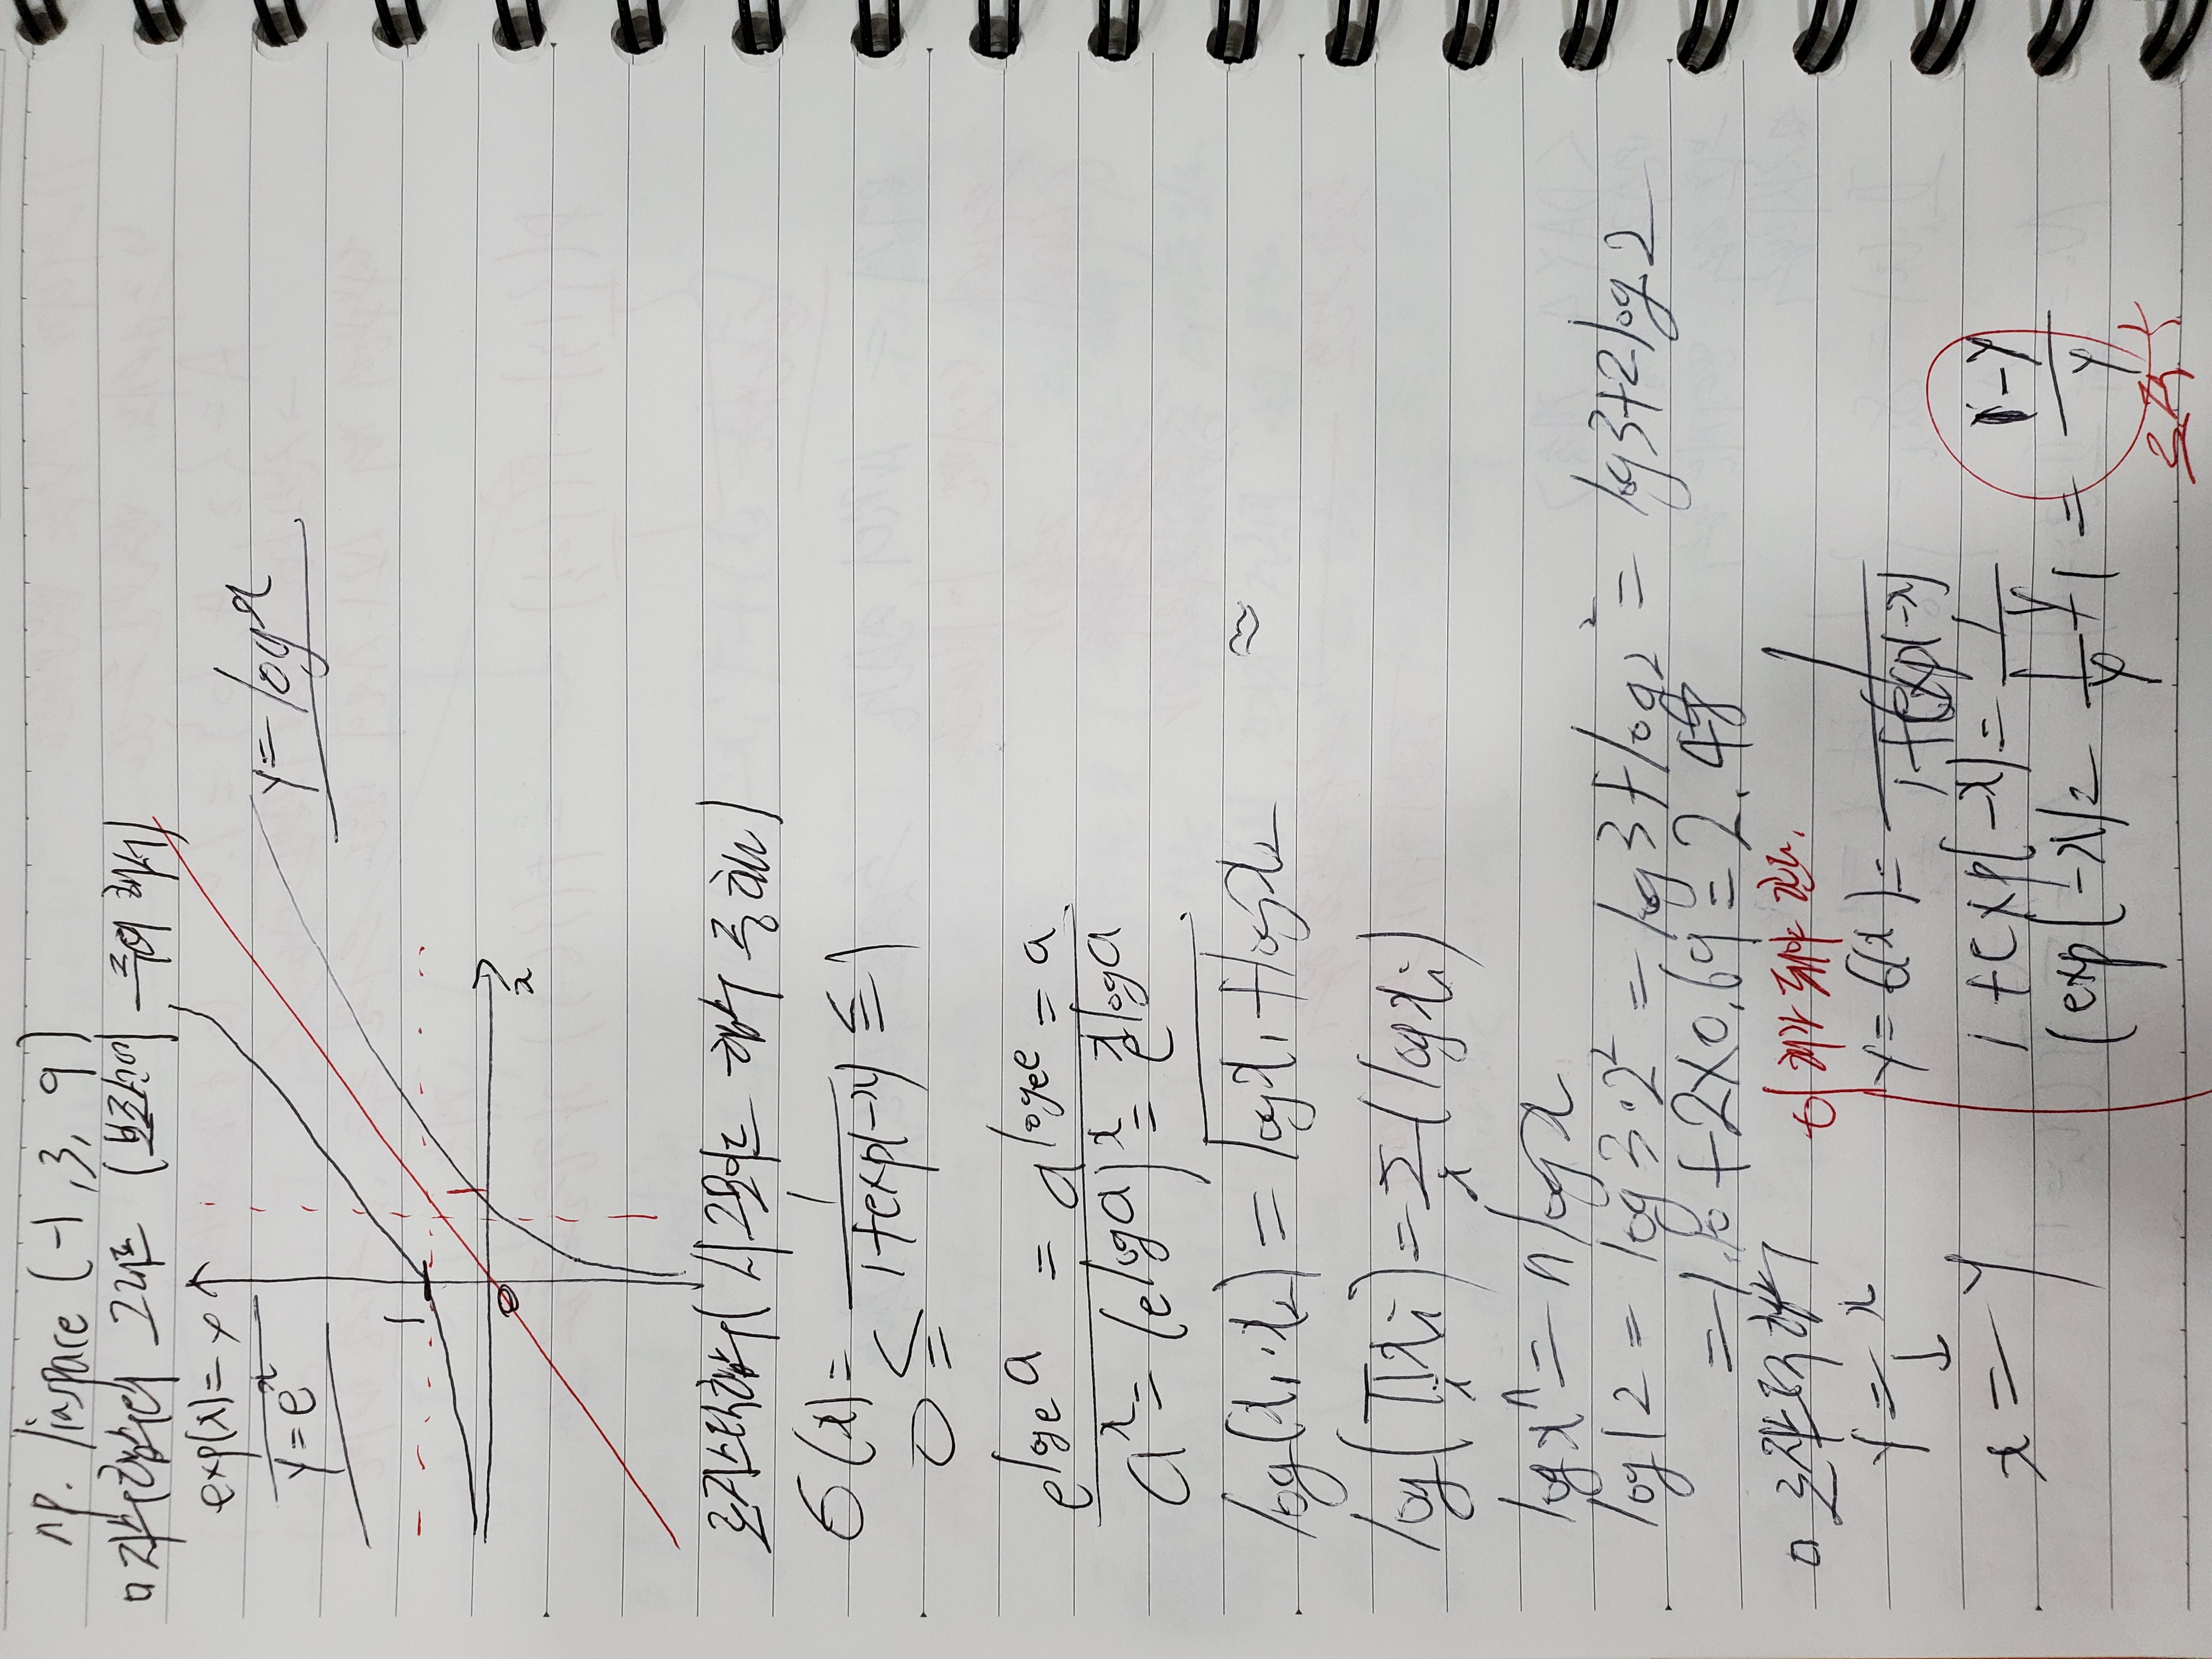 np. linspace (-1, 3, 9)
□ 지수함수의 그래프 (보조선에 주의해서)
exp(x)= y
y=e^x
y=log x
1
1
0
x
로지스틱함수(시그모이드 함수 중 하나)
σ(x)= 1/(1+exp(-x)) ≦ 1
0 ≦
e^(log_e a) = a^(log_e e) = a
a^x = (e^(log a))^x = e^(x log a)
log(x₁·x₂) = log x₁ + log x₂ ≈
log(∏_i x_i) = Σ_i (log x_i)
log x^n = n log x
log 12 = log 3·2² = log 3 + log 2² = log 3+2 log 2
= 1.10 + 2×0.69 = 2.48
□ 로지스틱 함수
이해가 돼야 한다.
y = x
↓
x = y
y= σ(x)= 1/(1+exp(-x))
1+exp(-x)= 1/y
(exp(-x)= 1/y - 1 = (1-y)/y